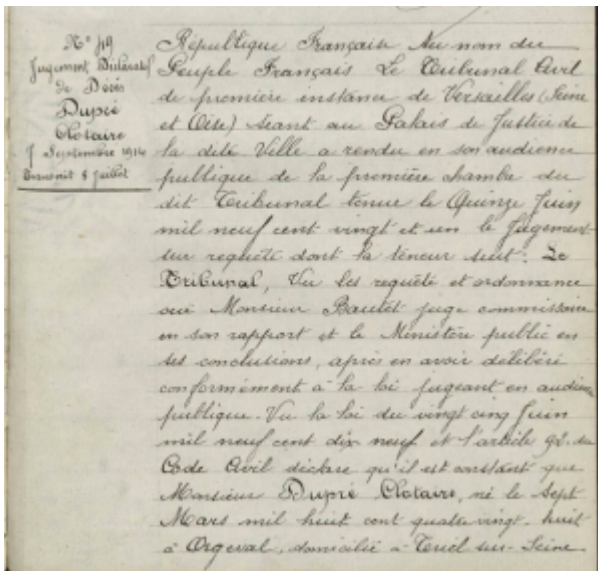 N° 49
Jugement Déclaratif
de Décès
Dupré
Clotaire
7 Septembre 1914
Transcrit 8 juillet
République Française Au nom du
Peuple Français Le Tribunal Civil
de première instance de Versailles (Seine
et Oise) séant au Palais de Justice de
la dite Ville a rendu en son audience
publique de la première chambre du
dit Tribunal tenue le Quinze Juin
mil neuf cent vingt et un le Jugement
sur requête dont la teneur suit : Le
Tribunal, Vu les requête et ordonnance
oui Monsieur Bautet juge commissaire
en son rapport et le Ministère public en
ses conclusions, après en avoir délibéré
conformément à la loi jugeant en audience
publique. Vu la loi du vingt cinq Juin
mil neuf cent dix neuf et l'article 92 du
Code Civil déclare qu'il est constant que
Monsieur Dupré Clotaire, né le Sept
Mars mil huit cent quatre vingt. huit
à Orgeval, domicilié à Triel sur-Seine